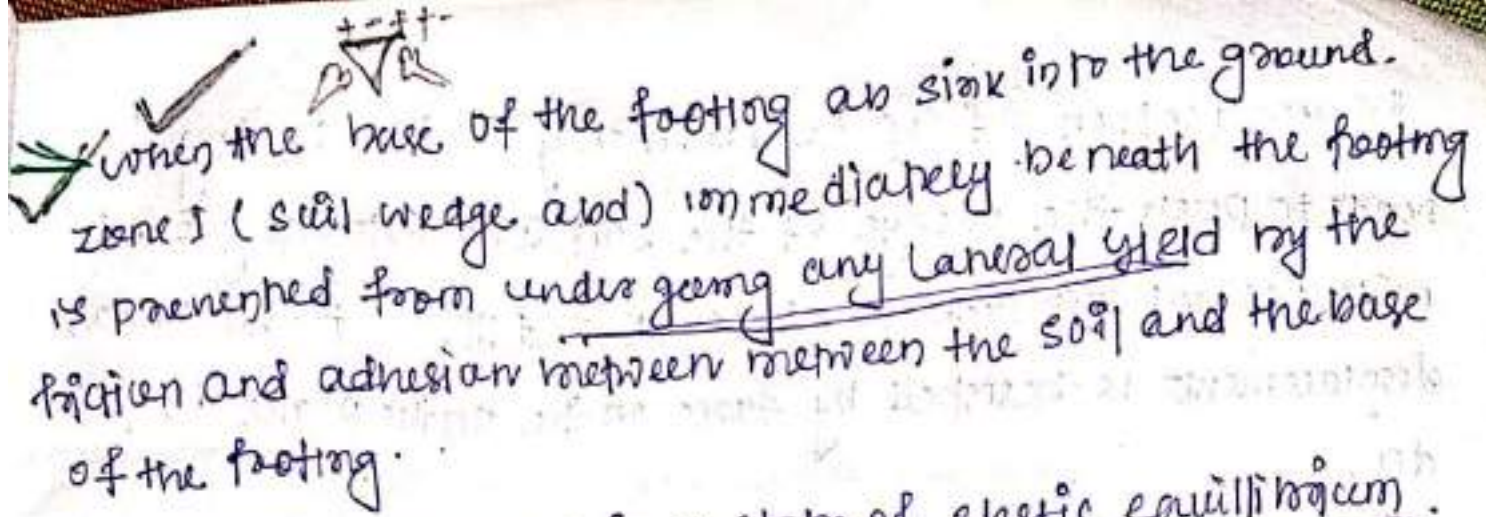 when the base of the footing ab sink into the ground.
zone I (soil wedge abd) immediately beneath the footing
is prevented from undergoing any lateral yield by the
friction and adhesian between between the soil and the base
of the footing.
state of elastic equillibrium.